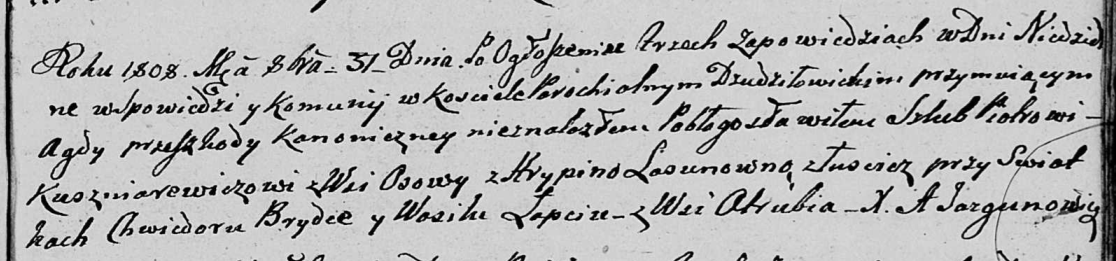 Roku 1808. Mca 8bra - 31 - Dnia. Po Ogłoszeniu trzech Zapowiedziach w Dni Niedziel
ne w Spowiedzi y Komunij w Kosciele Parochialnym Dzudziłowickim przymuiącym
Agdy przeszkody kanoniczney nieznalozłem Pobłogosławiłem Szlub Piotrowi
Kuszniarewiczowi z Wsi Osowy z Hrypiną Lasunowną przy Swiat
kach Chwiedoru Brydce y Wasilu Łapciu - z Wsi Otrubia - X. A Jazgunowicz